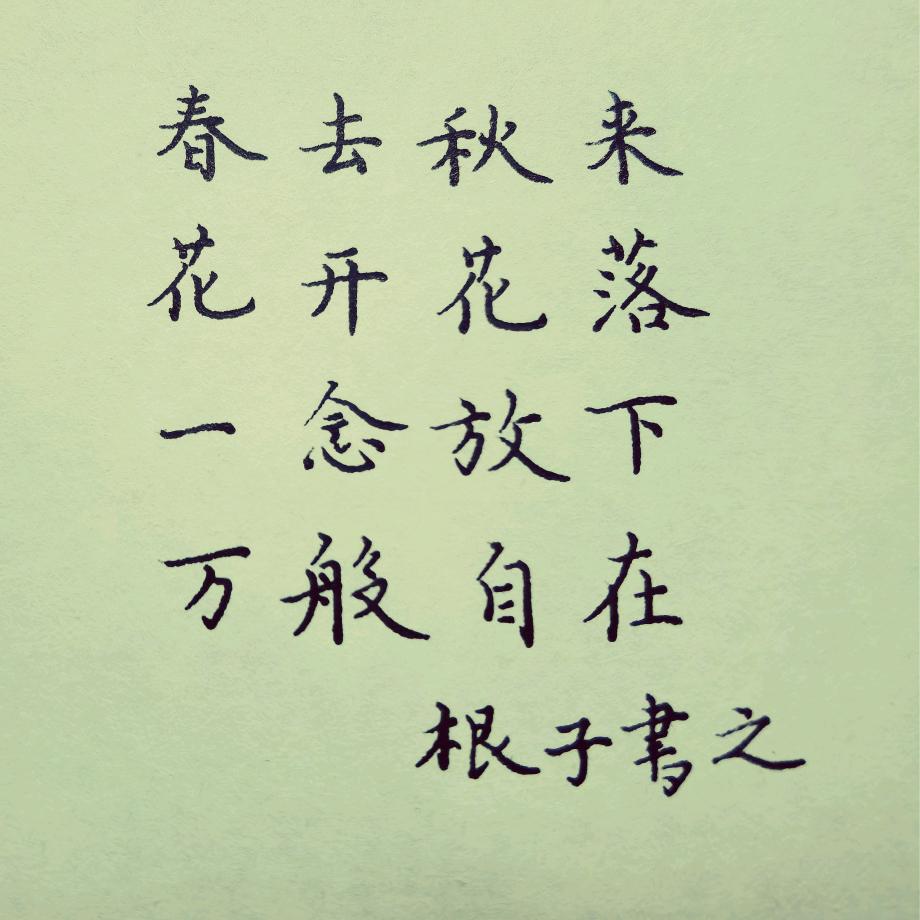 春去秋来
花开花落
一念放下
万般自在
根子書之